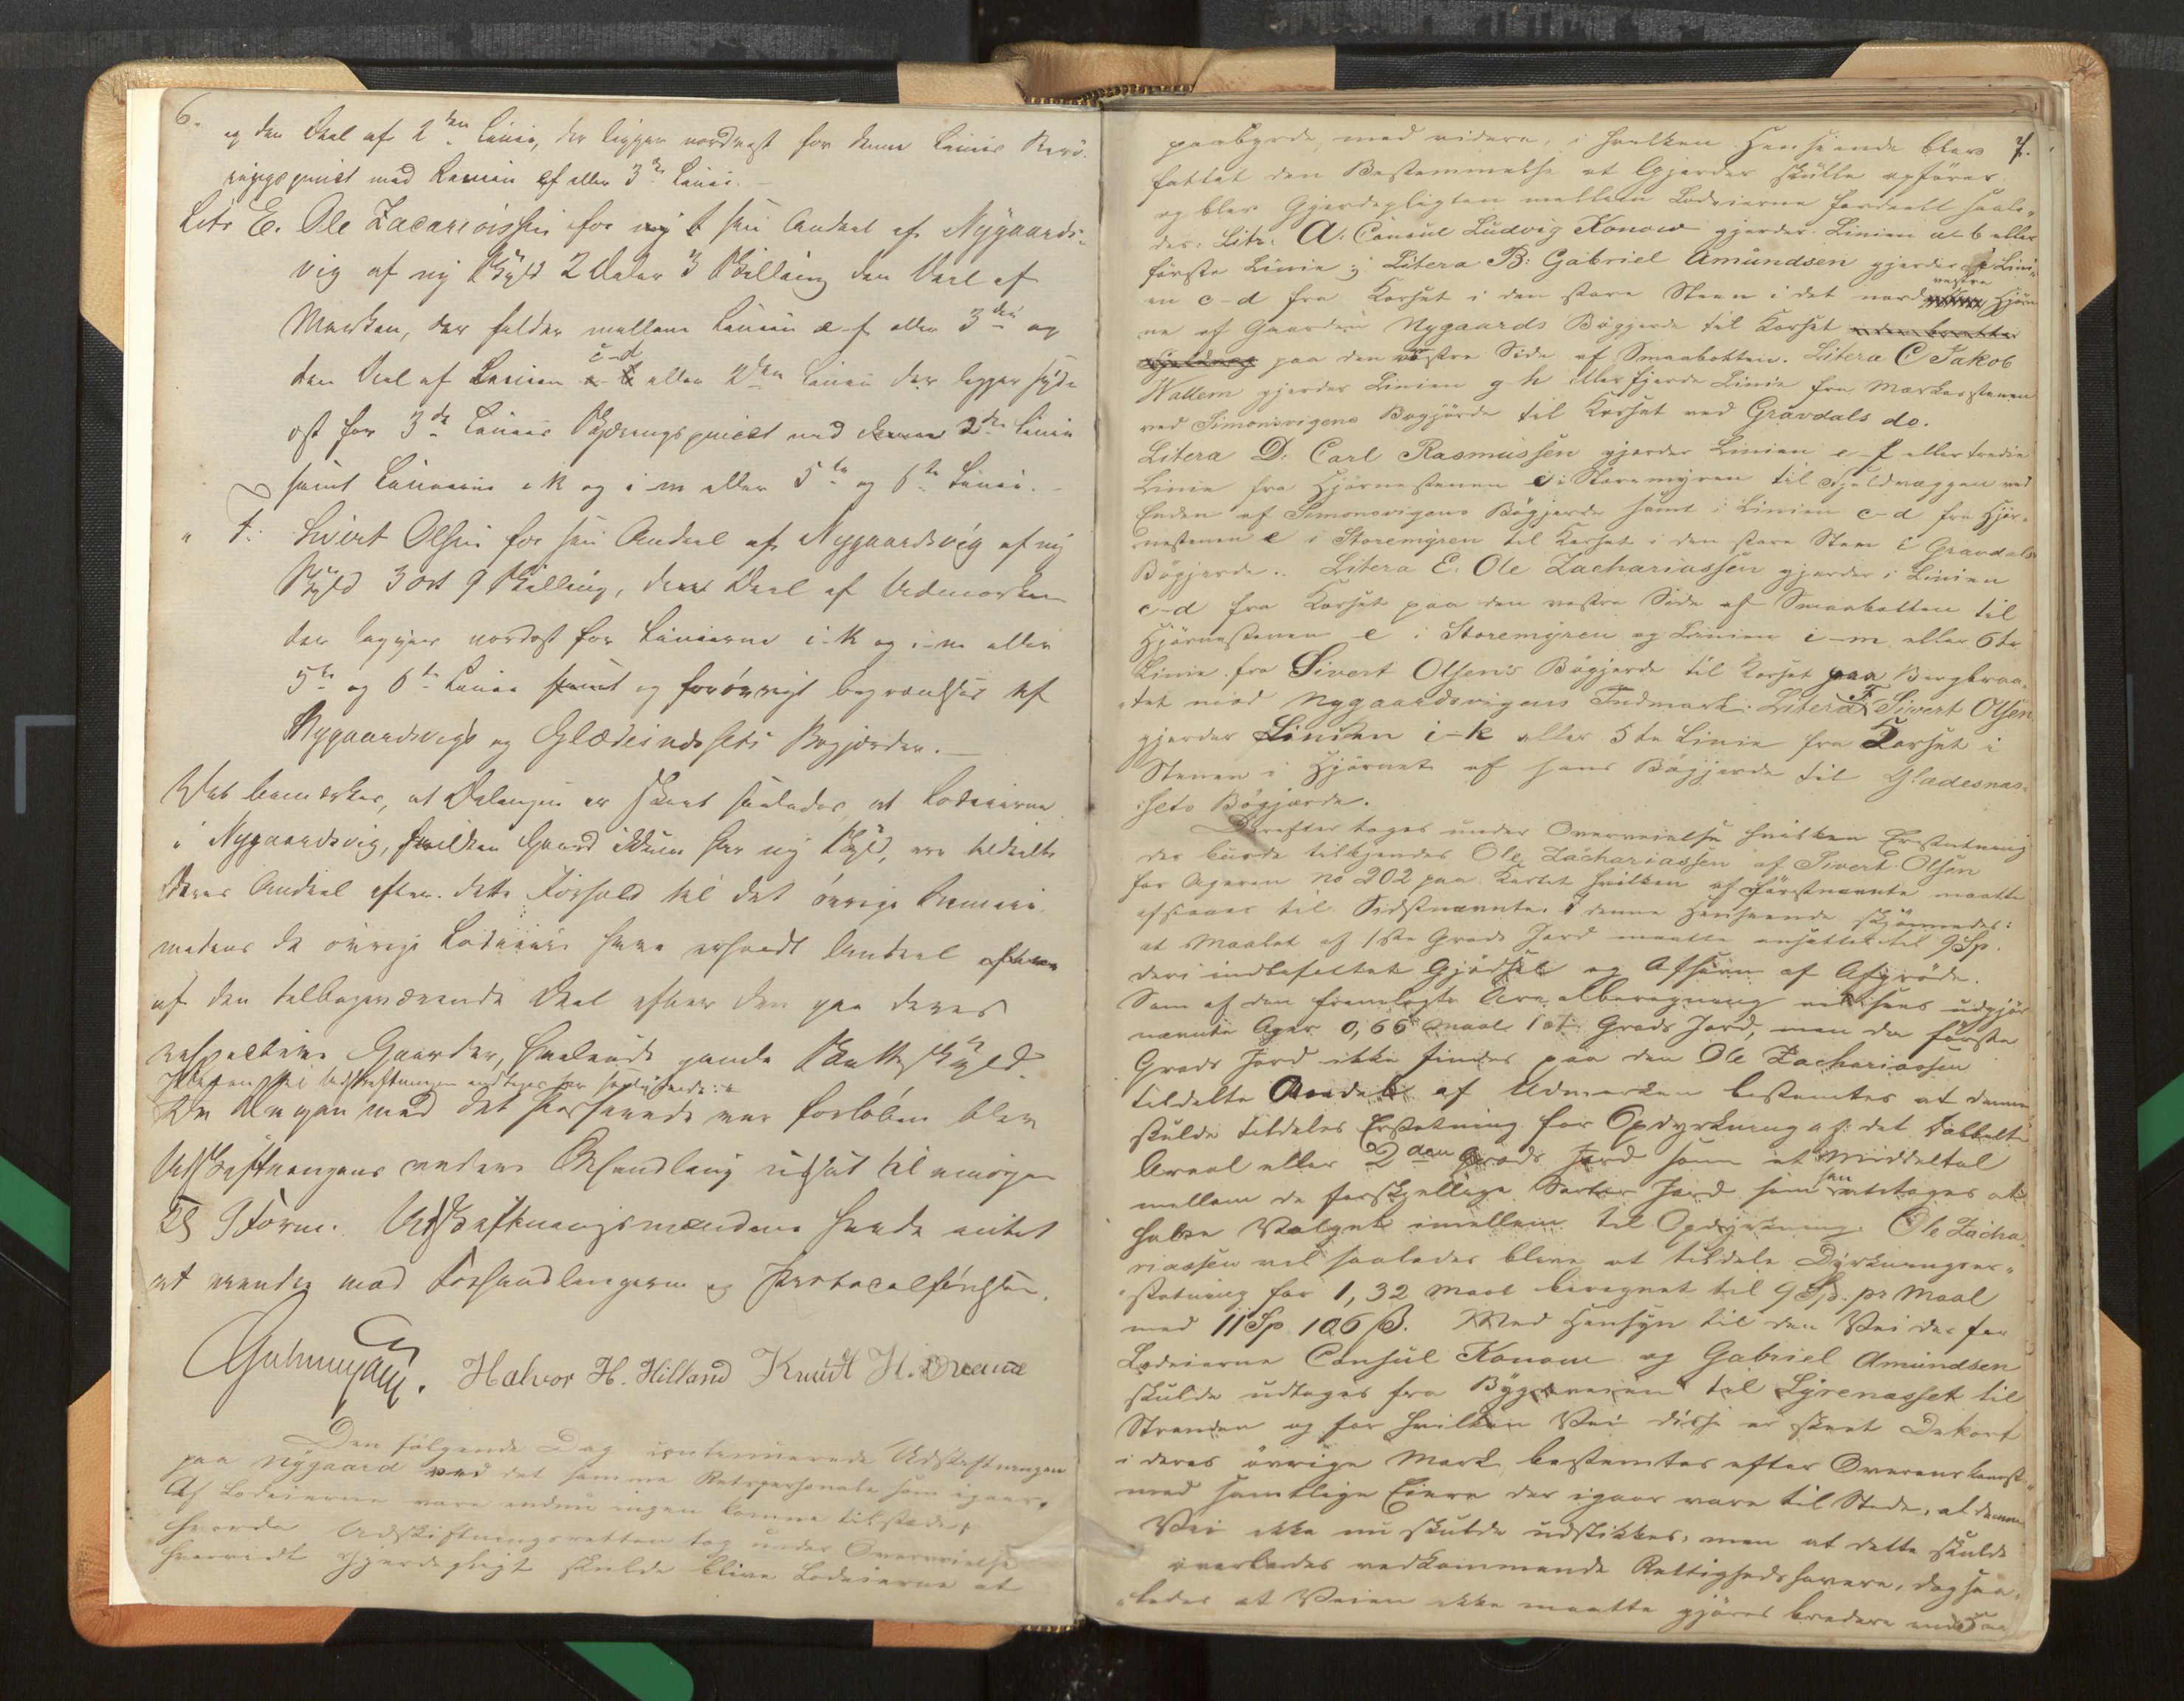 6.
og den Deel af 2den Linie, der ligger nordvest for denne Linies Berö-
ringspunct med Linien ef eller 3die Linie.
Litr E. Ole Zacariassen for sin Andeel af Nygaards-
vig af ny Skyld 2 Daler 3 Skilling den Deel af
Marken, der falder mellem Linien e-f eller 3die og
den Deel af Linien c-d eller 2den Linie der ligger syd-
ost for 3die Linies Skjæringspunct med denne 2den Linie
samt Linierne i-k og i-m eller 5te og 6te Linie.
" F: Sivert Olsen for sin Andeel af Nygaardsvig af ny
Skyld 3 ort 9 Skilling, den Deel af Udmarken
der ligger nordost for Linierne i-k og i-m eller
5te og 6te Linie samt og forövrigt begrændses af
Nygaardsvigs og Glædesnæssets Bögjerder.
Det bemærkes, at Delingen er skeet saaledes, at Lodeierne
i Nygaardsvig, hvilken Gaard ikkun har ny Skyld, ere tildeelte
deres Andeel efter dette Forhold til det övrige
medens de övrige Lodeiere have erholdt Andeel
af den tilbageværende Deel efter den paa deres
respective Gaarder, heelende gamle Skatteskyld.
Da Dagen med det Passerede var forloben blev
Udskiftningens videre Behandling udsat til imorgen
Kl 9 Form. Udskiftningsmændene havde intet
at erindre mod Forhandlingerne og Protocolförslen.
Halvor H. Hilland Knud H.
Den følgende Dag continuerede Udskiftningen
paa Nygaard ved det samme Retspersonale som igaar.
Af Lodeierne vare endnu ingen komne tilstede,
hvorda Udskiftningsretten tog under Overveielse
hvorvidt Gjerdepligt skulde blive Lodeierne at
7.
paabyrde med videre, i hvilken Henseende blev
fattet den Bestemmelse at Gjerder skulle opföres
og blev Gjerdepligten mellem Lodeierne fordeelt saale-
des: Litr. A: Consul Ludvig Konow gjerder Linien a-b eller
förste Linie; Litera B: Gabriel Amundsen gjerder Lini-
en c-d fra Korset i den store Steen i det nordvestre Hjör-
ne af Gaarden Nygaards Bögjerde til Korset
paa den vestre Side af Smaabotten. Litera C Jakob
Wallem gjerder Linien g-h eller fjerde Linie fra Mærkesstenen
ved Simonsvigens Bogjörde til Korset ved Gravdals do.
Litera D: Carl Rasmussen gjerder Linien e-f eller tredie
Linie fra Hjörnestenen e i Storemyren til Fjeldvæggen ved
Enden af Simonsvigens Bögjerde samt i Linien c-d fra Hjör-
nestenen e i Storemyren til Korset i den store Steen i Gravdals
Bögjerde. Litera E. Ole Zachariassen gjerder i Linien
c-d fra Korset paa den vestre Side af Smaabotten til
Hjörnestenen e i Storemyren og Linien i-m eller 6te
Linie fra Sivert Olsens Bögjerde til Korset paa Bergbraa-
tet mod Nygaardsvigens Indmark. Litera F Sivert Olsen
gjerder Linien i-k eller 5te Linie fra Korset i
Stenen i Hjörnet af hans Bögjerde til Gladesnæs-
sets Bögjærde.
Derefter toges under Overveielse hvilken Erstatning
der burde tilkjendes Ole Zachariassen af Sivert Olsen
for Ageren no 202 paa Kartet hvilken af förstnævnte maatte
afstaaes til Sidstnævnte. I denne Henseende skjönnedes:
at Maalet af 1ste Grads Jord maatte ansættes til 9 Sp.
deri indbefattet Gjödsel og Afsavn af Afgröde.
Som af den fremlagte Arealberegning vil sees udgjör
nævnte Ager 0,66 Maal 1st Grads Jord, men da förste
Grads Jord ikke findes paa den Ole Zachariassen
tildelte Andeel af Udmarken bestemtes at denne
skulde tildeles Erstatning for Opdyrkning af det dobbelte
Areal eller 2den Grads Jord som et Middeltal
mellem de forskjellige Sorter Jord som kan antages at
have Valget imellem til Opdyrkning. Ole Zacha-
riassen vil saaledes blive at tildele Dyrkningser-
statning for 1,32 Maal beregnet til 9 Sp. pr Maal
med 11 Sp 106 ß. Med Hensyn til den Vei der for
Lodeierne Consul Konow og Gabriel Amundsen
skulde udtages fra Bygdeveien til Lyrenæsset til
Stranden og for hvilken Vei disse er skeet Dekort
i deres övrige Mark bestemtes efter Overenskomst
med samtlige Eiere der igaar vare til Stede, at denne
Vei ikke nu skulde udstikkes, men at dette skulde
overlades vedkommende Rettighedshavere, dog saa-
ledes at Veien ikke maatte gjöres bredere end 5